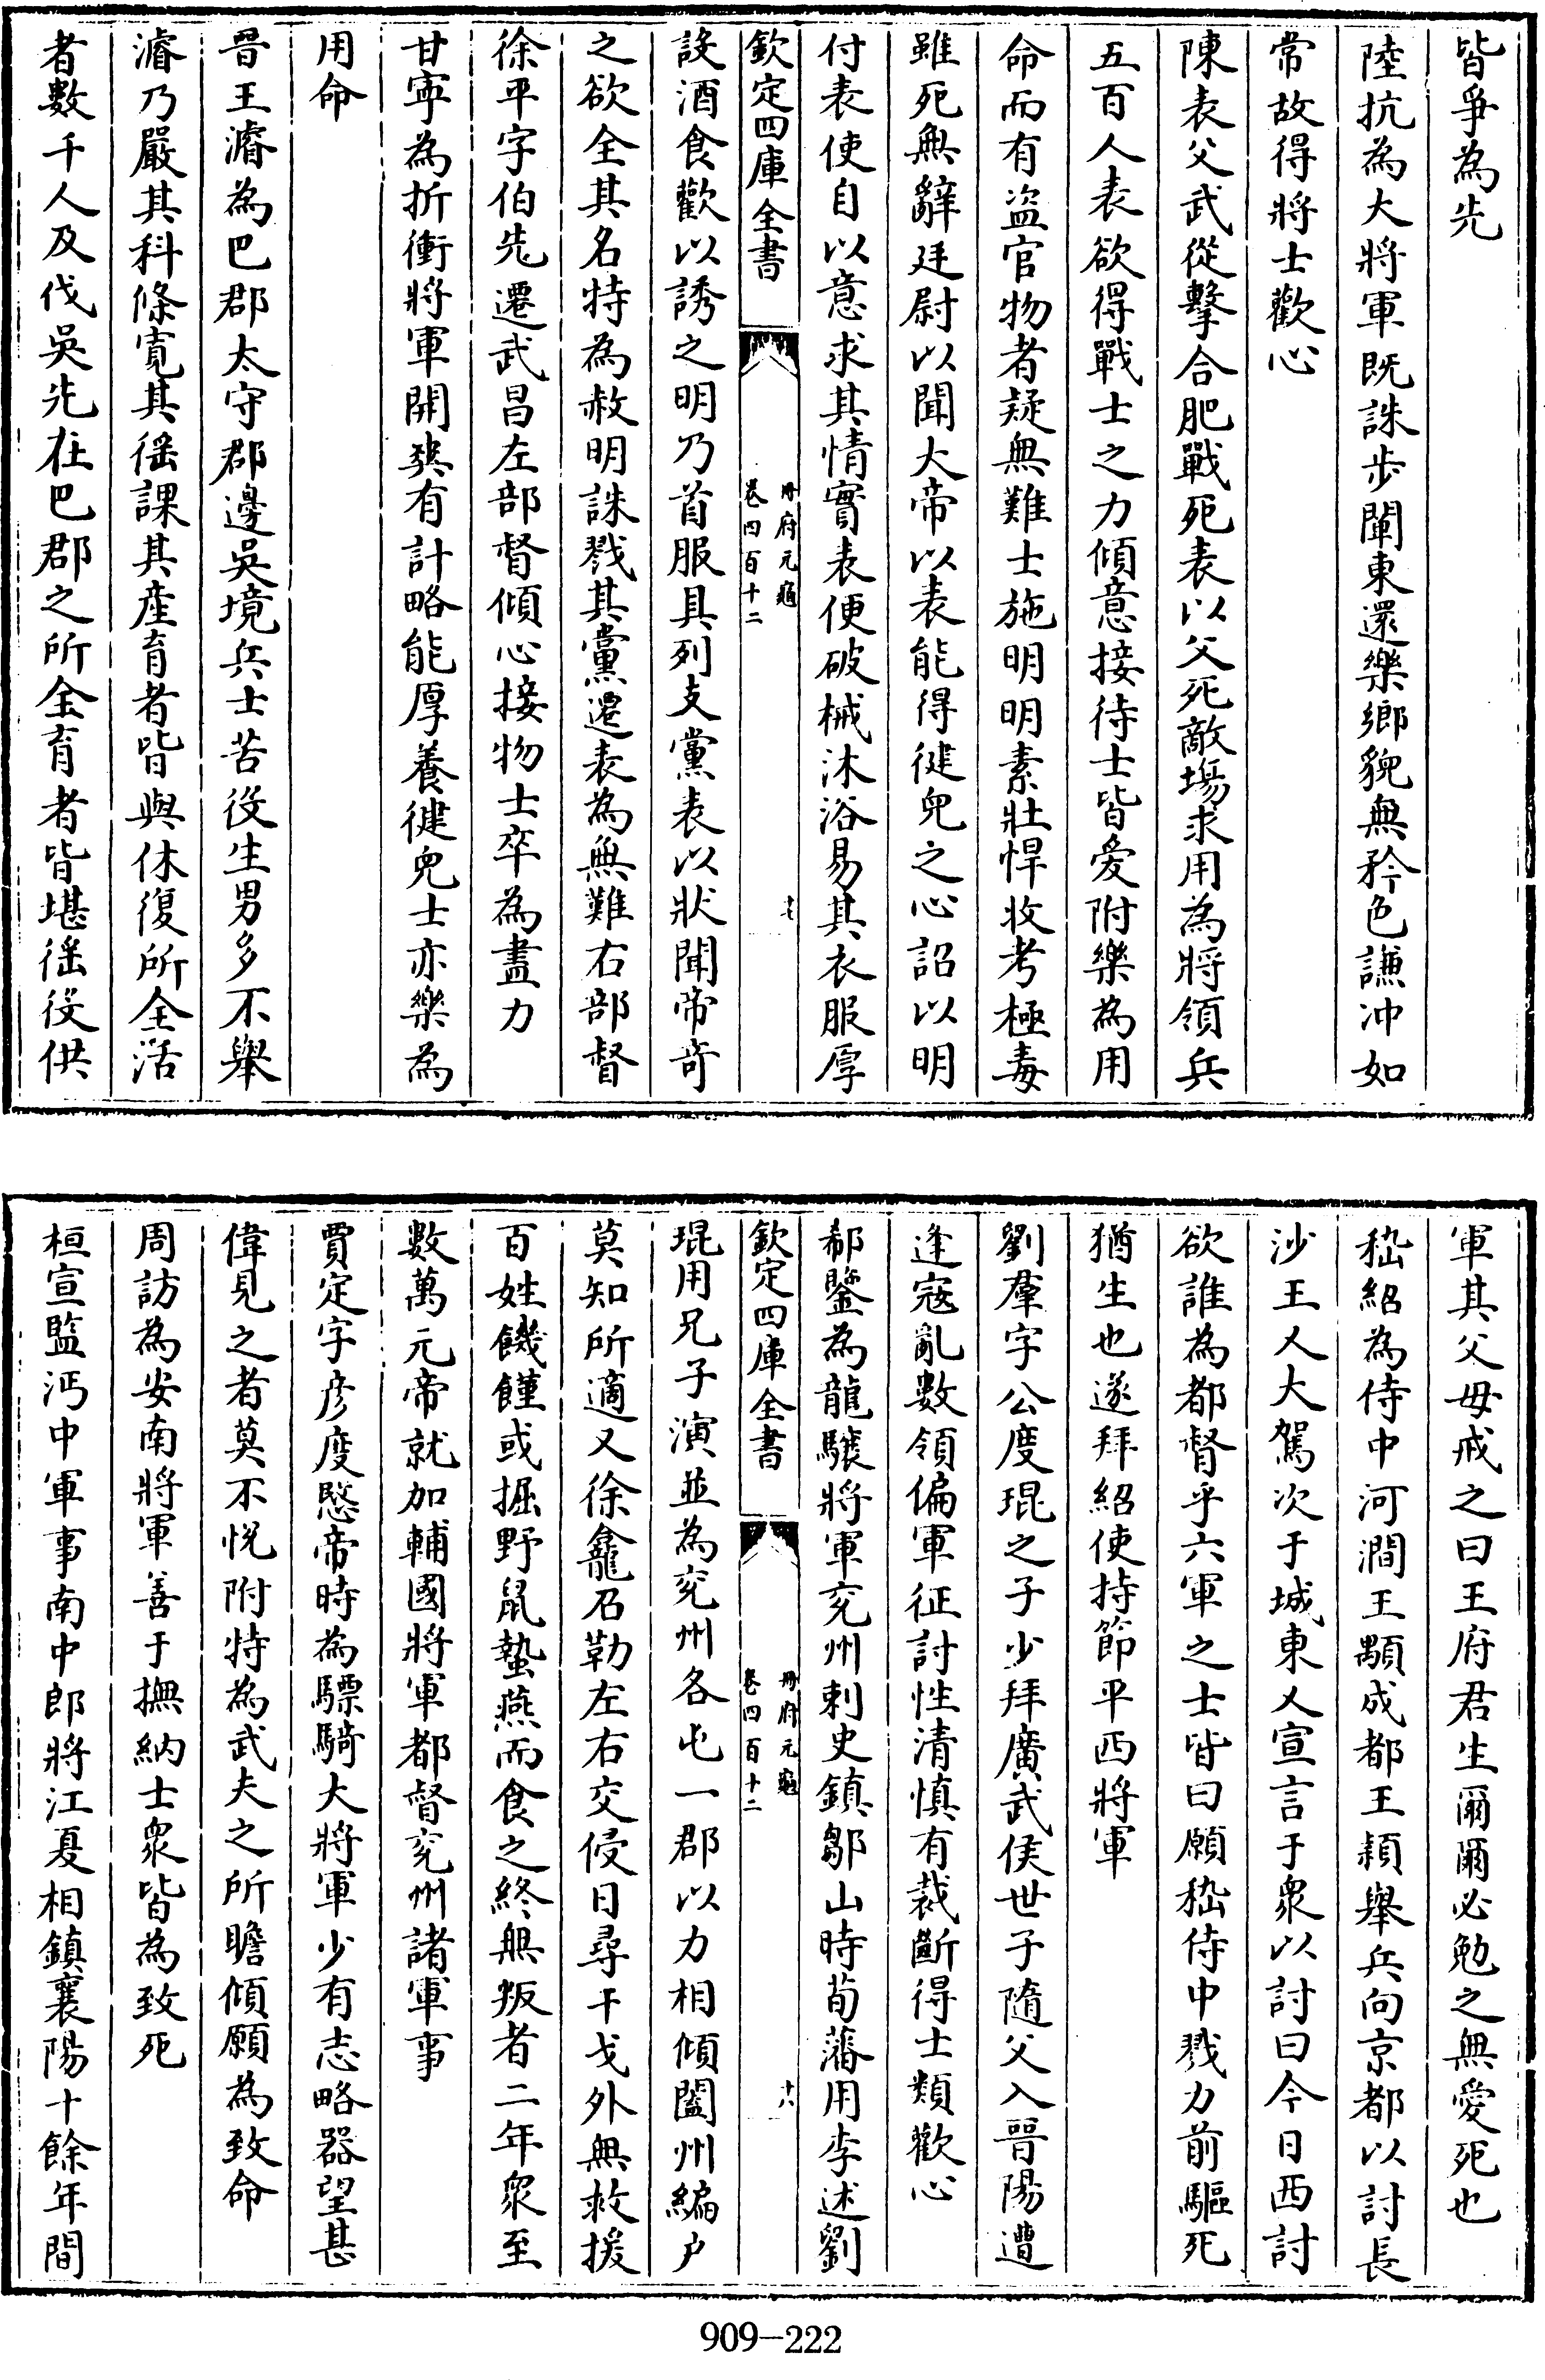 皆爭為先
陸抗為大將軍既誅步闡東還樂鄉貌無矜色謙冲如
常故得將士歡心
陳表父武從擊合肥戰死表以父死敵場求用為將領兵
五百人表欲得戰士之力傾意接待士皆愛附樂為用
命而有盜官物者疑無難士施明明素壯悍收考極毒
雖死無辭廷尉以聞大帝以表能得健兒之心詔以明
付表使自以意求其情實表便破械沐浴易其衣服厚
欽定四庫全書
冊府元龜
卷四百十二
十七
設酒食歡以誘之明乃首服具列支黨表以狀聞帝奇
之欲全其名特為赦明誅戮其黨遷表為無難右部督
徐平字伯先遷武昌左部督傾心接物士卒為盡力
甘寧為折衝將軍開爽有計略能厚養健兒士亦樂為
用命
晉王濬為巴郡太守郡邊吳境兵士苦役生男多不舉
濬乃嚴其科條寬其徭課其產育者皆與休復所全活
者數千人及伐吳先在巴郡之所全育者皆堪徭役供
軍其父母戒之曰王府君生爾爾必勉之無愛死也
嵇紹為侍中河澗王顒成都王穎舉兵向京都以討長
沙王乂大駕次于城東乂宣言于衆以討曰今日西討
欲誰為都督乎六軍之士皆曰願嵇侍中戮力前驅死
猶生也遂拜紹使持節平西將軍
劉羣字公度琨之子少拜廣武侯世子隨父入晉陽遭
逢寇亂數領偏軍征討性清慎有裁斷得士類歡心
郗鑒為龍驤將軍兗州刺史鎮鄒山時荀藩用李述劉
欽定四庫全書
冊府元龜
卷四百十二
十八
琨用兄子演並為兗州各屯一郡以力相傾闔州編户
莫知所適又徐龕石勒左右交侵日尋干戈外無救援
百姓饑饉或掘野鼠蟄燕而食之終無叛者二年衆至
數萬元帝就加輔國將軍都督兗州諸軍事
賈定字彦度愍帝時為驃騎大將軍少有志略器望甚
偉見之者莫不悅附特為武夫之所瞻傾願為致命
周訪為安南將軍善于撫納士衆皆為致死
桓宣監沔中軍事南中郎將江夏相鎮襄陽十餘年間
909-222